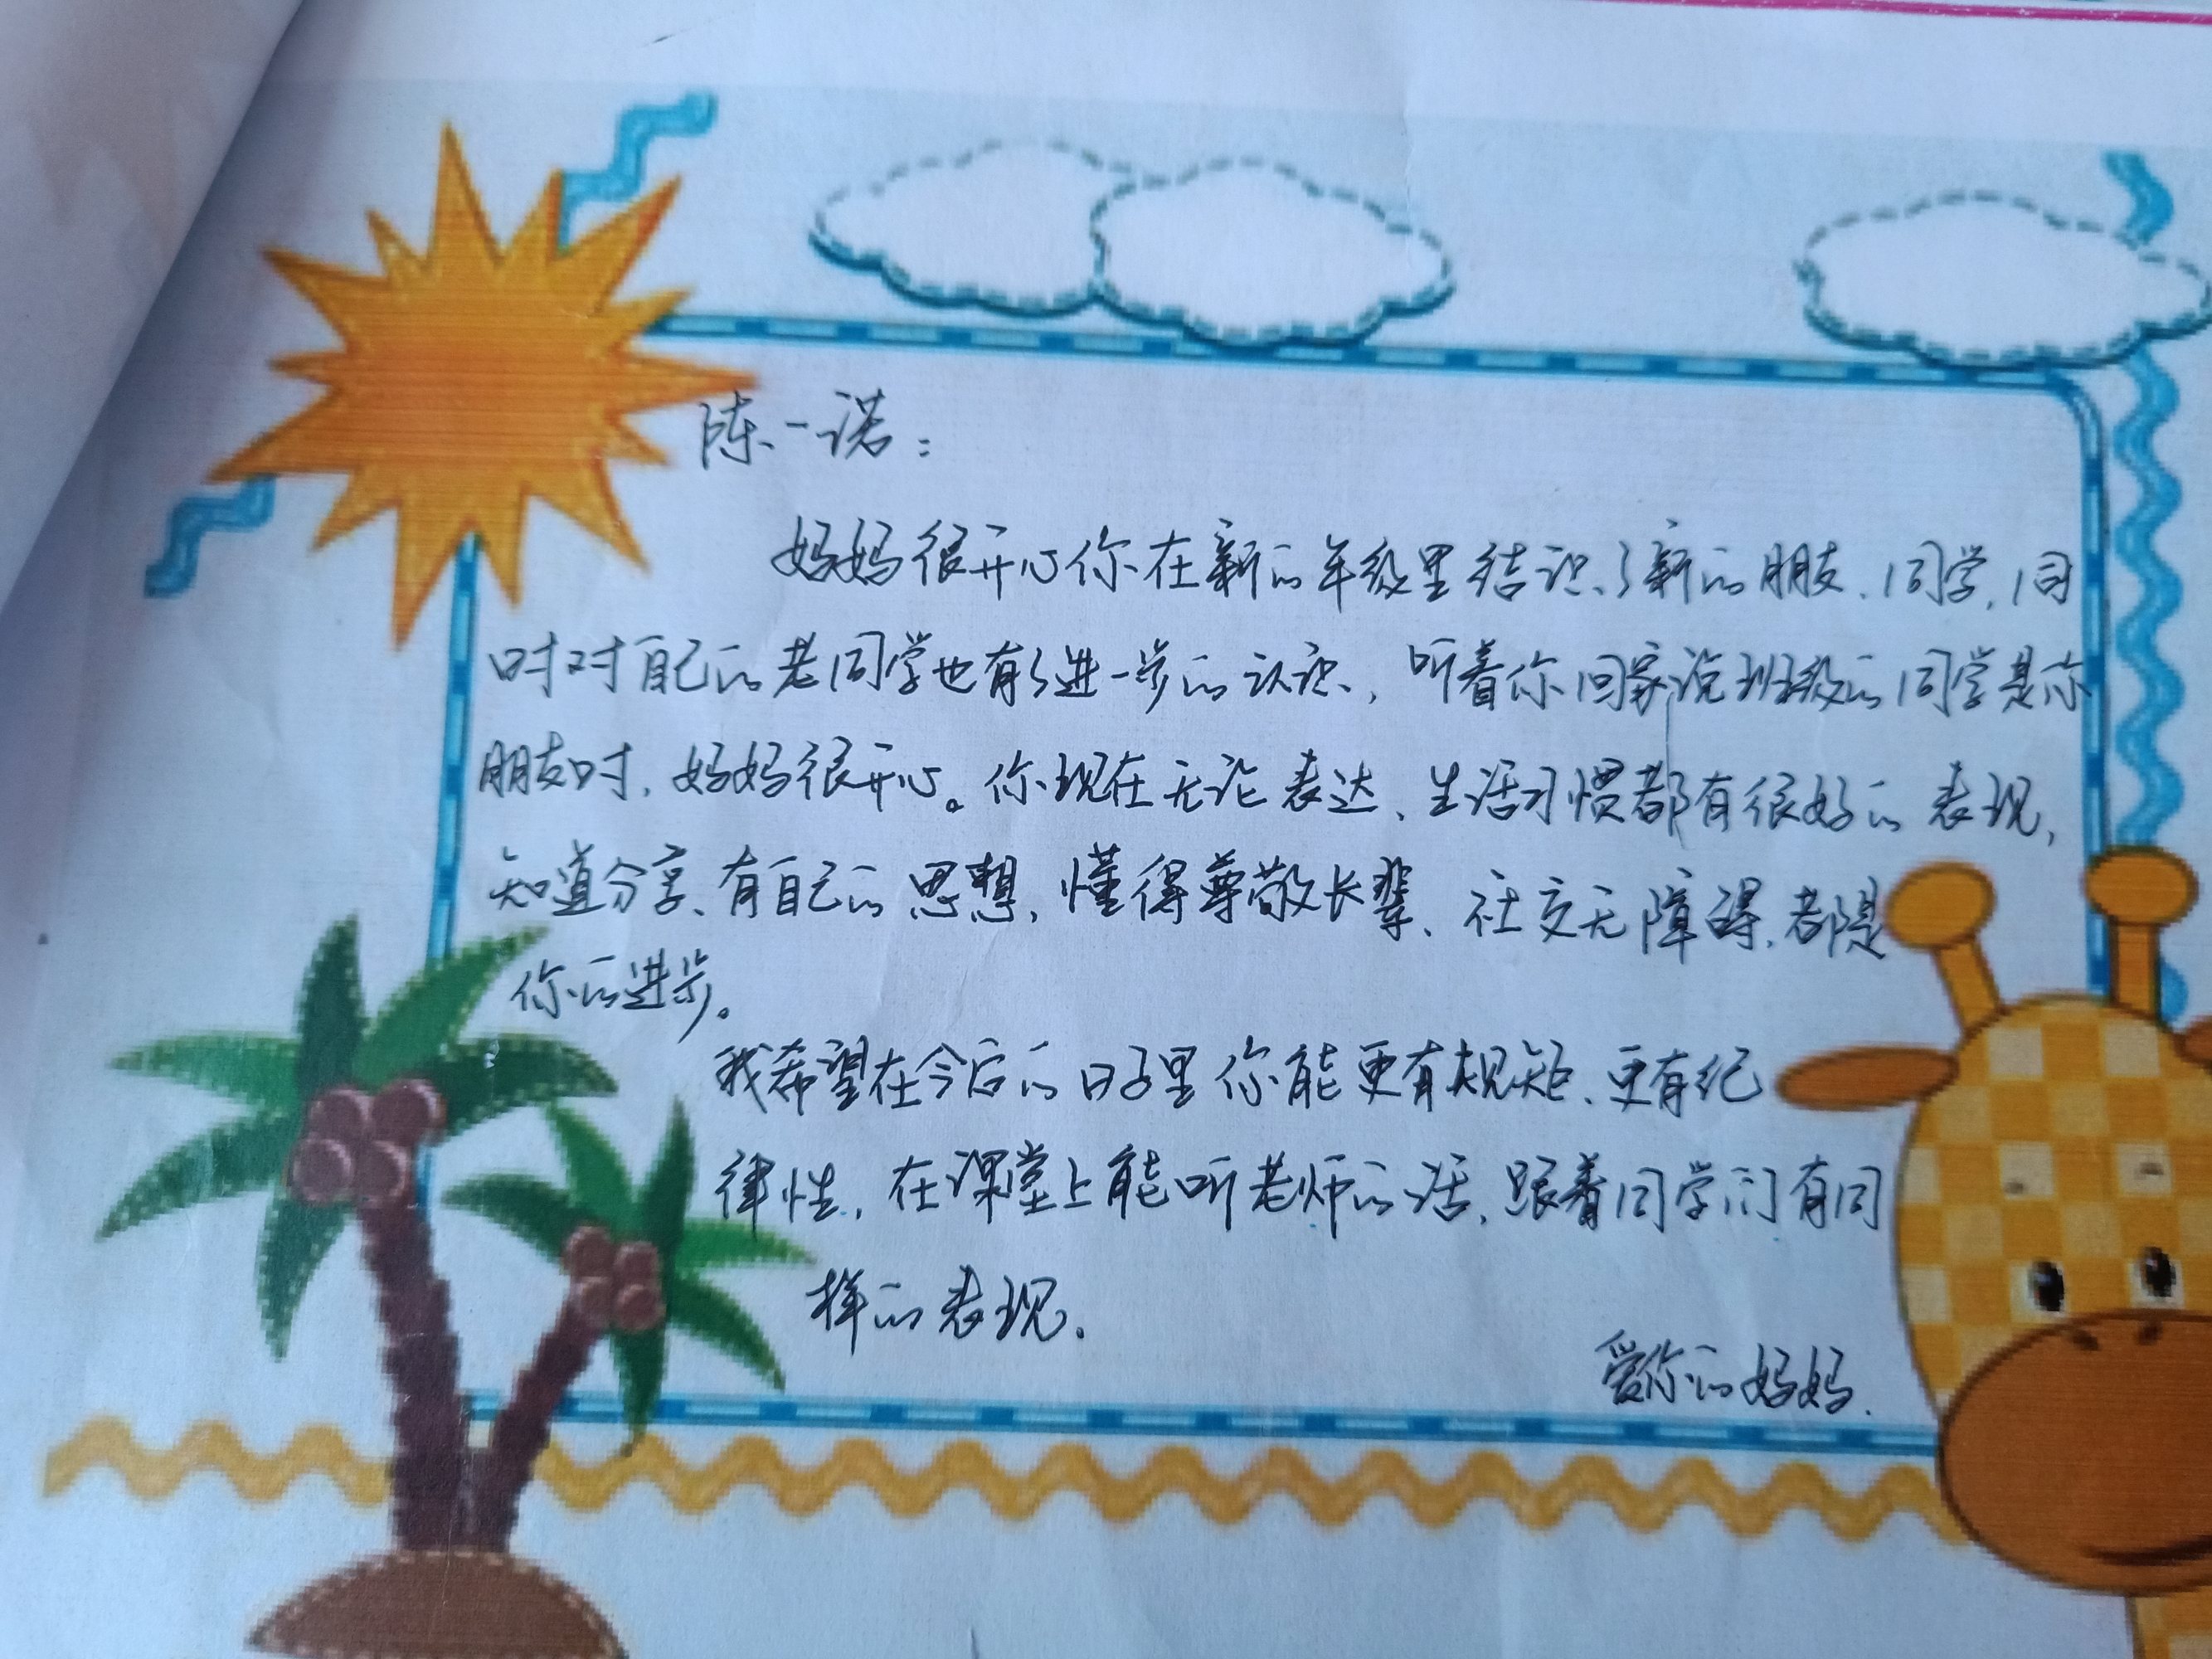 陈一诺：
妈妈很开心你在新的年级里结识了新的朋友、同学,同
时对自己的老同学也有了进一步的认识,听着你回家说班级的同学是你
朋友时,妈妈很开心。你现在无论表达、生活习惯都有很好的表现,
知道分享、有自己的思想,懂得尊敬长辈、社交无障碍,都是
你的进步。
我希望在今后的日子里你能更有规矩、更有纪
律性,在课堂上能听老师的话,跟着同学们有同
样的表现.
爱你的妈妈.